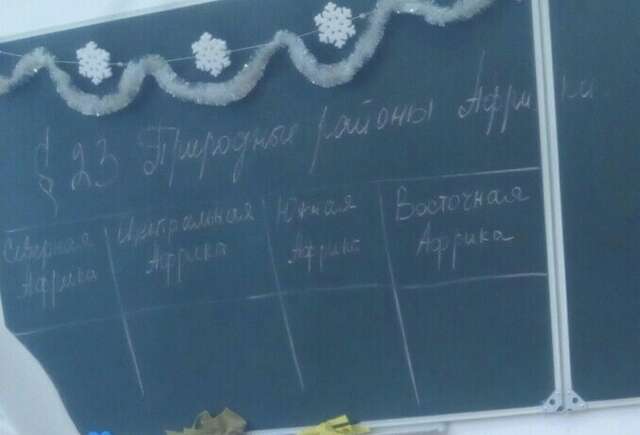 § 23 Природные районы Африки
Северная Африка
Центральная Африка
Южная Африка
Восточная Африка